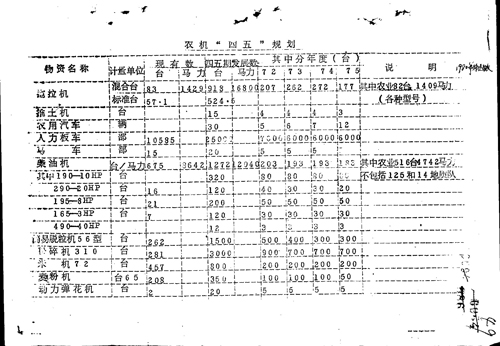 农机“四五”规划
物资名称 计量单位 现有数 四五期发展数 其中分年度（台） 说明
台 马力 台 马力 72 73 74 75
拖拉机 混合台 83 1429 918 16800 207 262 272 177 其中农业82台1409马力
标准台 57·1 524·5 （各种型号）
推土机 台 15 4 4 4 3
农用汽车 辆 30 5 6 7 12
人力板车 部 10585 6000 6000 6000
马车 部 15 20 5 5 5 5
柴油机 台/马力 675 3642 1272 203 193 193 其中农业516台4742马力
其中190—10HP 台 320 80 80 80 不包括125和14地质队
290—20HP 台 16 120 40 30 30 20
195—8HP 台 21 200 50 50 50 50
165—3HP 台 7 120 30 30 30 30
490—40HP 台 12 3 3 3 3
56型 台 262 1500 500 400 300 300
碎机310 台 281 3000 900 700 700 700
机72 台 457 800 200 200 200 200
磨粉机 台65 208 350 100 100 100 50
动力弹花机 台 2 20 5 5 5 5